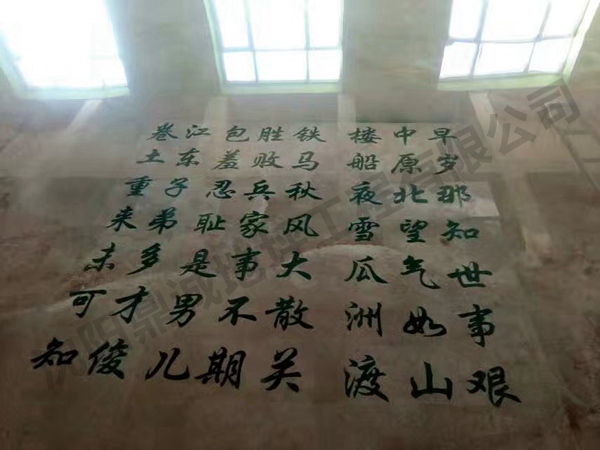 早岁那知世事艰
中原北望气如山
楼船夜雪瓜洲渡
铁马秋风大散关
胜败兵家事不期
包羞忍耻是男儿
江东子弟多才俊
卷土重来未可知
沈阳鼎诚地坪工程有限公司